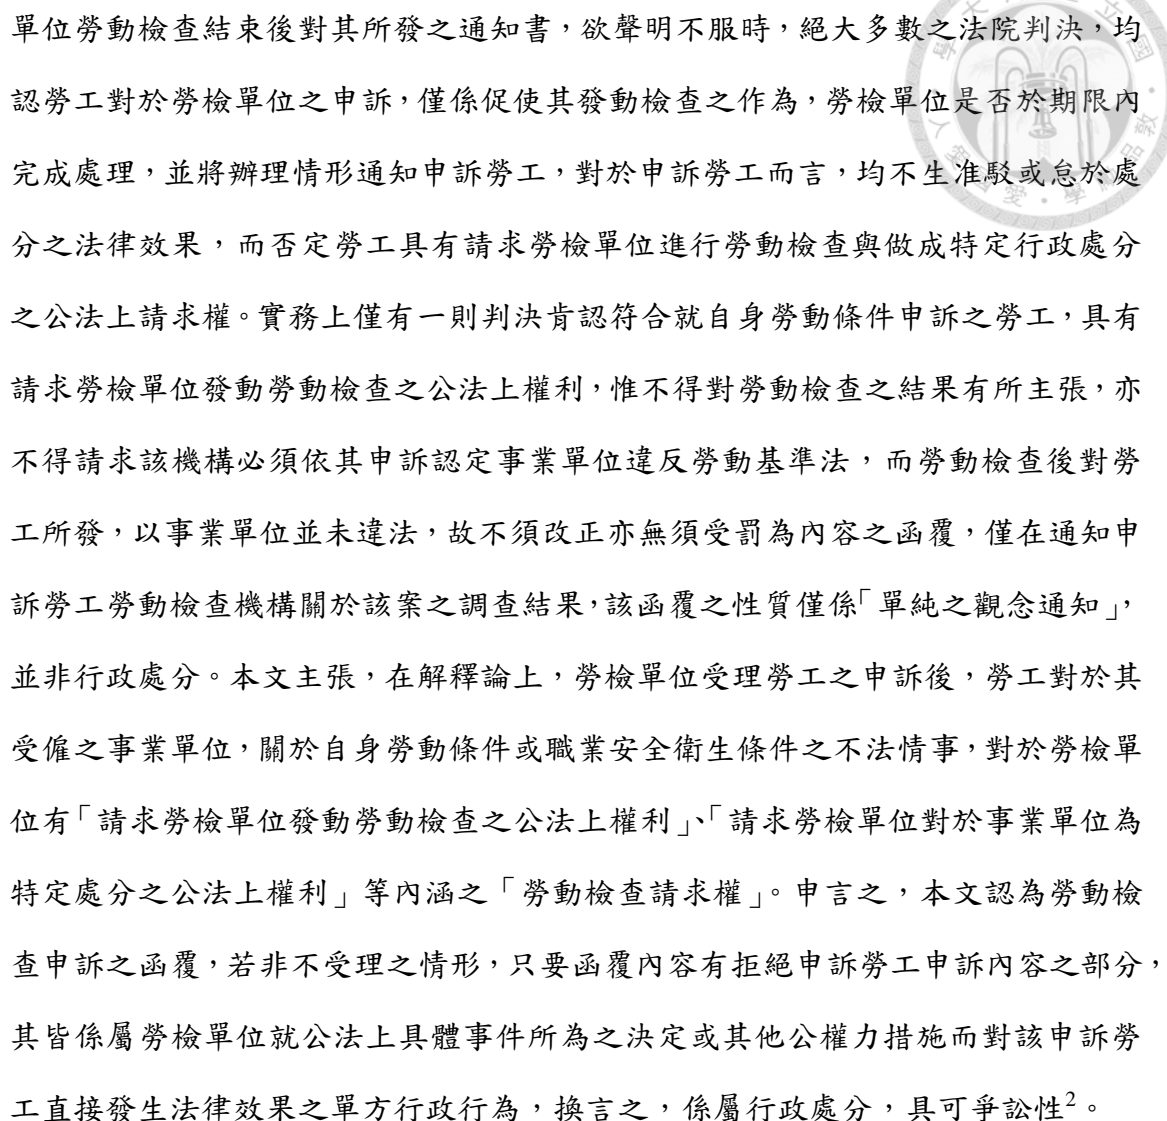 單位勞動檢查結束後對其所發之通知書，欲聲明不服時，絕大多數之法院判決，均
認勞工對於勞檢單位之申訴，僅係促使其發動檢查之作為，勞檢單位是否於期限內
完成處理，並將辦理情形通知申訴勞工，對於申訴勞工而言，均不生准駁或怠於處
分之法律效果，而否定勞工具有請求勞檢單位進行勞動檢查與做成特定行政處分
之公法上請求權。實務上僅有一則判決肯認符合就自身勞動條件申訴之勞工，具有
請求勞檢單位發動勞動檢查之公法上權利，惟不得對勞動檢查之結果有所主張，亦
不得請求該機構必須依其申訴認定事業單位違反勞動基準法，而勞動檢查後對勞
工所發，以事業單位並未違法，故不須改正亦無須受罰為內容之函覆，僅在通知申
訴勞工勞動檢查機構關於該案之調查結果，該函覆之性質僅係「單純之觀念通知」，
並非行政處分。本文主張，在解釋論上，勞檢單位受理勞工之申訴後，勞工對於其
受僱之事業單位，關於自身勞動條件或職業安全衛生條件之不法情事，對於勞檢單
位有「請求勞檢單位發動勞動檢查之公法上權利」、「請求勞檢單位對於事業單位為
特定處分之公法上權利」等內涵之「勞動檢查請求權」。申言之，本文認為勞動檢
查申訴之函覆，若非不受理之情形，只要函覆內容有拒絕申訴勞工申訴內容之部分，
其皆係屬勞檢單位就公法上具體事件所為之決定或其他公權力措施而對該申訴勞
工直接發生法律效果之單方行政行為，換言之，係屬行政處分，具可爭訟性2。